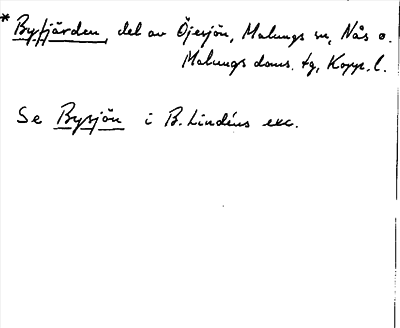 * Byfjärden, del av Öjesjön, Malungs sn, Nås o.
Malungs doms. tg, Kopp. l.
Se Bysjön i B. Lindéns exc.